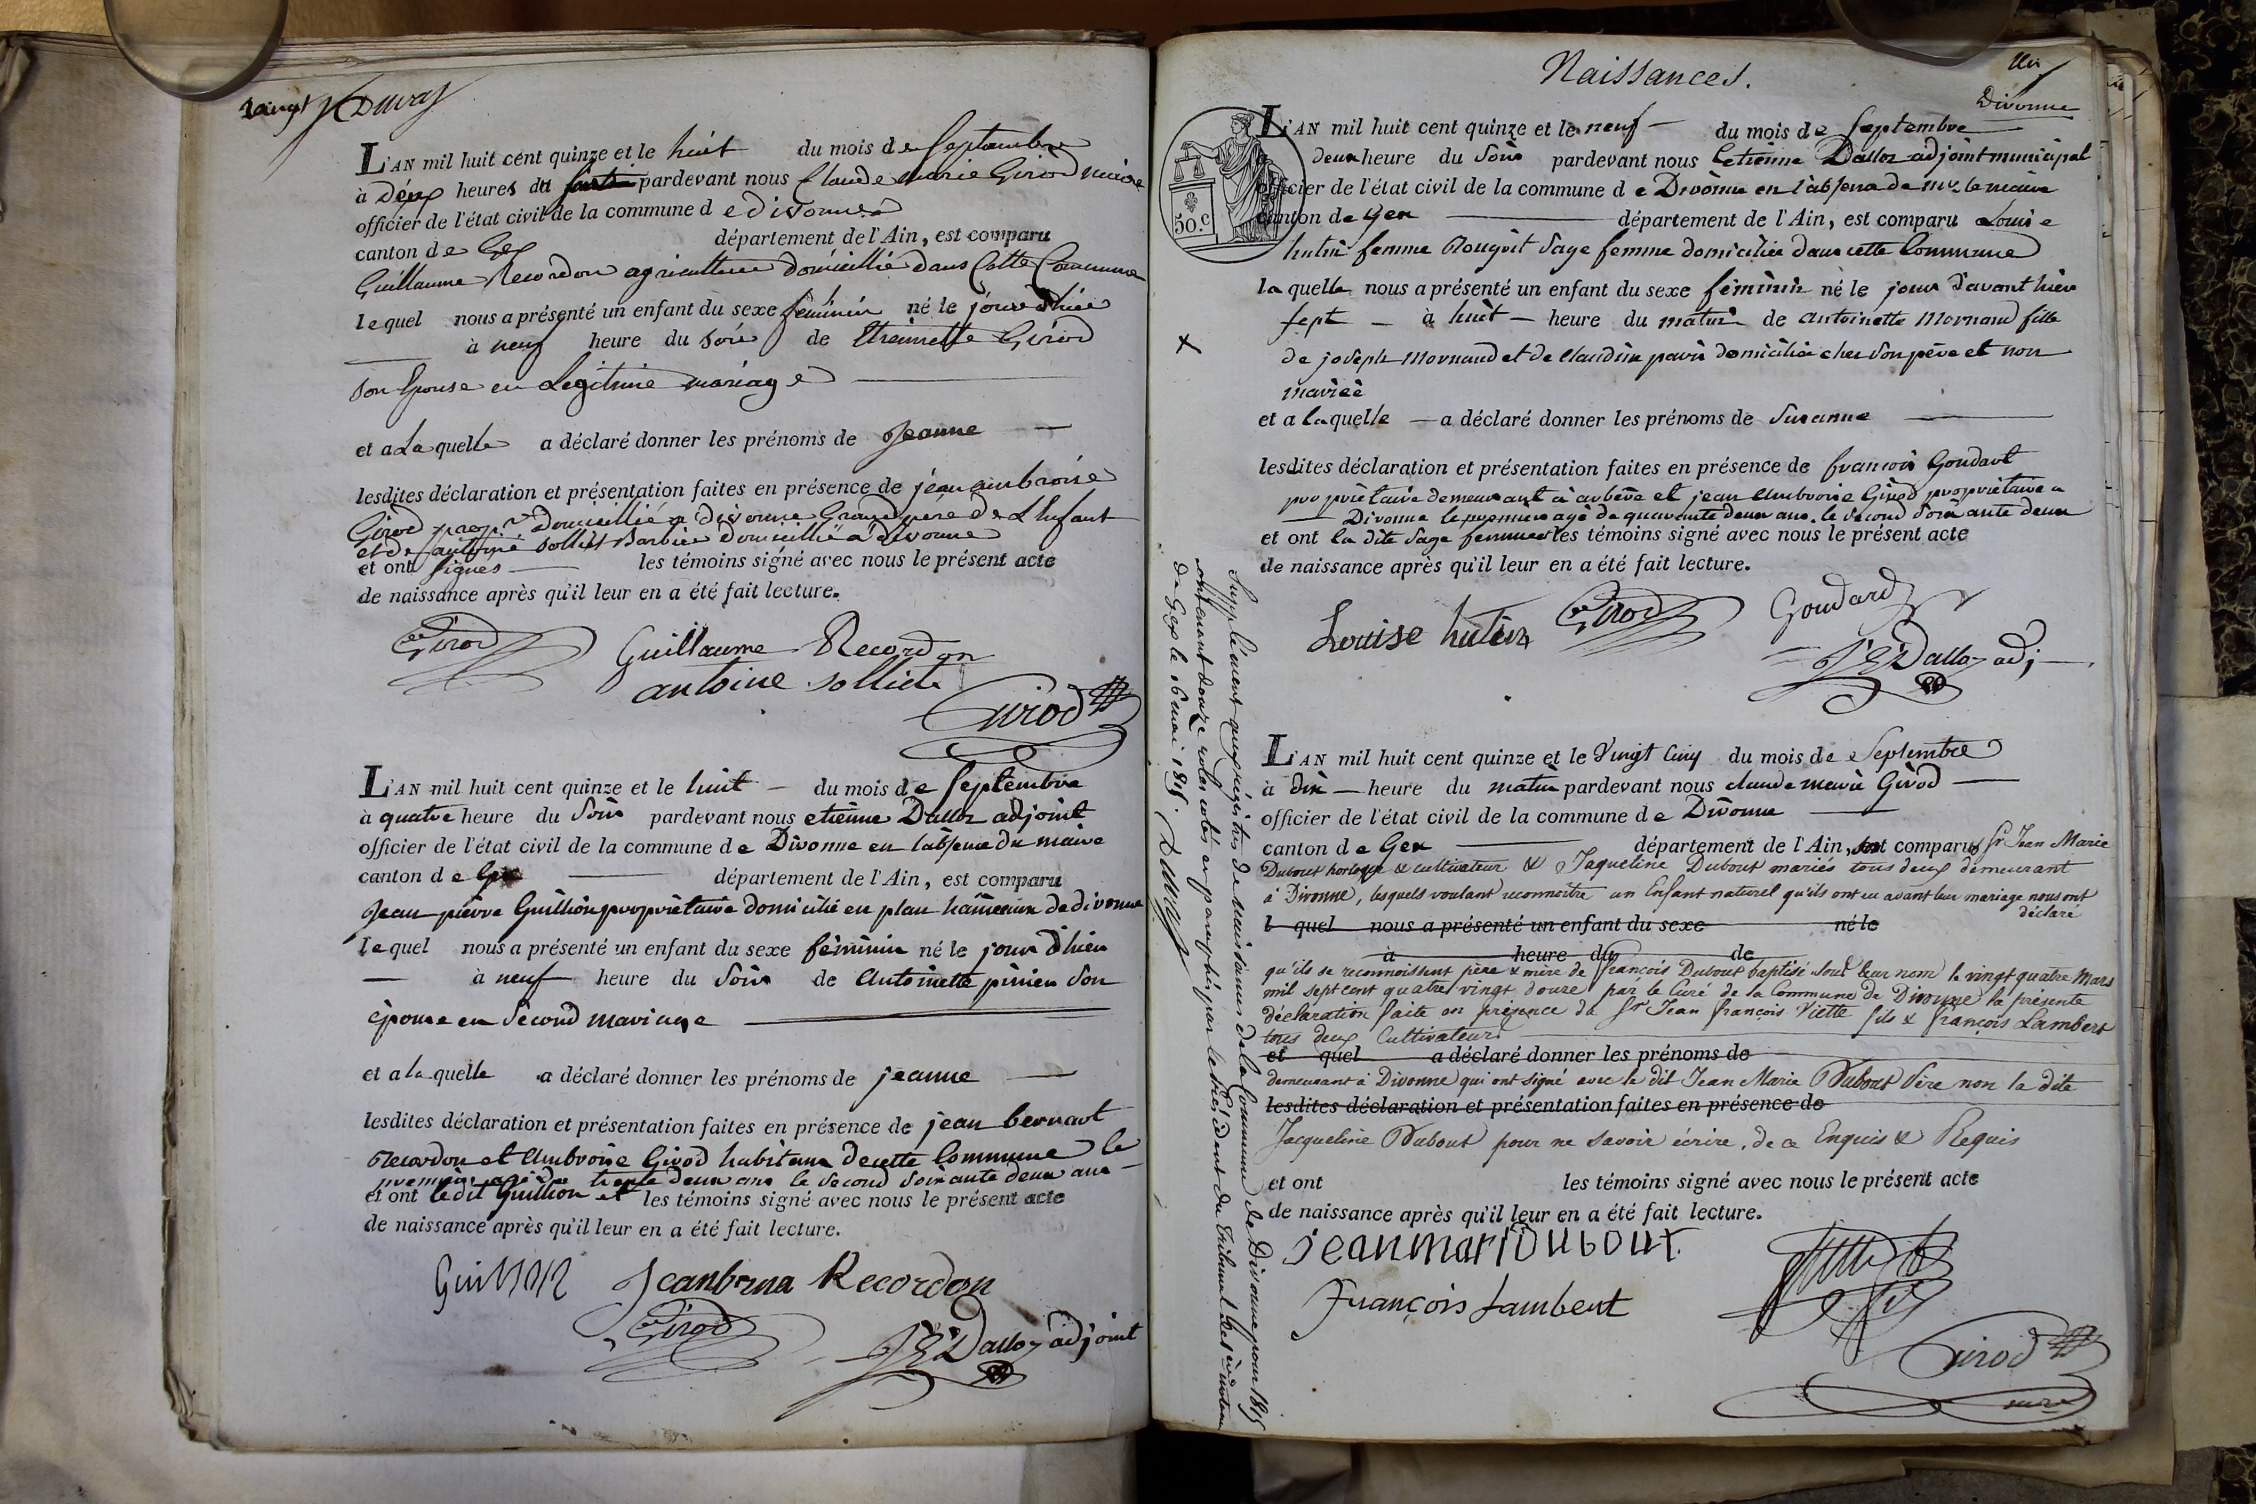 vingt Duvay
L'AN mil huit cent quinze et le huit du mois de Septembre
à Deux heures du pardevant nous Claude marie Girod maire
officier de l'état civil de la commune d e divonne
canton de Gex département de l'Ain, est comparu
Guillaume Recordon agriculteur domicillié dans Cette Commune
lequel nous a présenté un enfant du sexe feminin né le jour d'hier
à neuf heure du soir de Etiennette Girod
son Epouse en Legitime mariage
et a La quelle a déclaré donner les prénoms de Jeanne
lesdites déclaration et présentation faites en présence de jean ambroise
Girod prop.re Domicillié a divonne Grand père de L'Enfant
et de antoine solliet Barbier domicillié a divonne
et ont signes les témoins signé avec nous le présent acte
de naissance après qu'il leur en a été fait lecture.
Girod Guillaume Recordon
antoine solliet
Girod
L'AN mil huit cent quinze et le huit du mois de Septembre
à quatre heure du Soir pardevant nous etienne Dalloz adjoint
officier de l'état civil de la commune de Divonne en l'absence du maire
canton d e Gex département de l'Ain, est comparu
Jean pierre Guillion propriétaire domicilié en plan hameau de divonne
lequel nous a présenté un enfant du sexe féminin né le jour d'hier
à neuf heure du Soir de Antoinette pinier Son
épouse en Second mariage
et a la quelle a déclaré donner les prénoms de jeanne
lesdites déclaration et présentation faites en présence de jean bernard
Recordon et Ambroise Girod habitans de cette Commune le
premier agé de trente deux ans le second soixante deux ans
et ont le dit Guillion et les témoins signé avec nous le présent acte
de naissance après qu'il leur en a été fait lecture.
Guillion Jean berna Recordon
Girod
Dalloz adjoint
Naissances.
Divonne
50.c
L'AN mil huit cent quinze et le neuf du mois de Septembre
deux heure du Soir pardevant nous Etienne Dalloz adjoint municipal
officier de l'état civil de la commune d e Divonne en l'absence de mr. le maire
canton de Gex département de l'Ain, est comparu Louise
hutin femme Rougoit Sage femme domiciliée dans cette Commune
la quelle nous a présenté un enfant du sexe féminin né le jour d'avant hier
sept à huit heure du matin de antoinette Mornand fille
de joseph Mornand et de Claudine pavis domiciliée chez Son père et non
mariée
et a laquelle a déclaré donner les prénoms de Susanne
lesdites déclaration et présentation faites en présence de françois Goudard
propriétaire demeurant à arbère et jean Ambroise Girod propriétaire a
Divonne le premier agé de quarante deux ans. le second soixante deux
et ont la dite Sage femme et les témoins signé avec nous le présent acte
de naissance après qu'il leur en a été fait lecture.
Louise hutin Girod Goudard
Dalloz adj
Supplément au registre de naissances de la Commune de Divonne pour 1815
contenant douze roles cotés et paraphés par le président du Tribunal
de Gex le 16 mai 1815. Duvay
L'AN mil huit cent quinze et le Vingt Cinq du mois de Septembre
à dix heure du matin pardevant nous claude marie Girod
officier de l'état civil de la commune de Divonne
canton de Gex département de l'Ain, sont comparus Sr. Jean Marie
Dubout horloger & cultivateur & Jaqueline Dubout mariés tous deux demeurant
à Divonne, lesquels voulant reconnoitre un Enfant naturel qu'ils ont eu avant leur mariage nous ont
déclaré
l quel nous a présenté un enfant du sexe né le
à heure du de
qu'ils se reconnoissent père & mère de françois Dubout baptisé sous leur nom le vingt quatre Mars
mil sept cent quatre vingt douze par le Curé de la Commune de Divonne la présente
déclaration faite en présence de Sr. Jean François Viette fils & françois Lambert
tous deux Cultivateurs
et quel a déclaré donner les prénoms de
demeurant à Divonne qui ont signé avec le dit Jean Marie Dubout Père non la dite
lesdites déclaration et présentation faites en présence de
Jacqueline Dubout pour ne savoir écrire, de ce Enquis & Requis
et ont les témoins signé avec nous le présent acte
de naissance après qu'il leur en a été fait lecture.
jean mari Dubout
François Lambert
Girod
mre